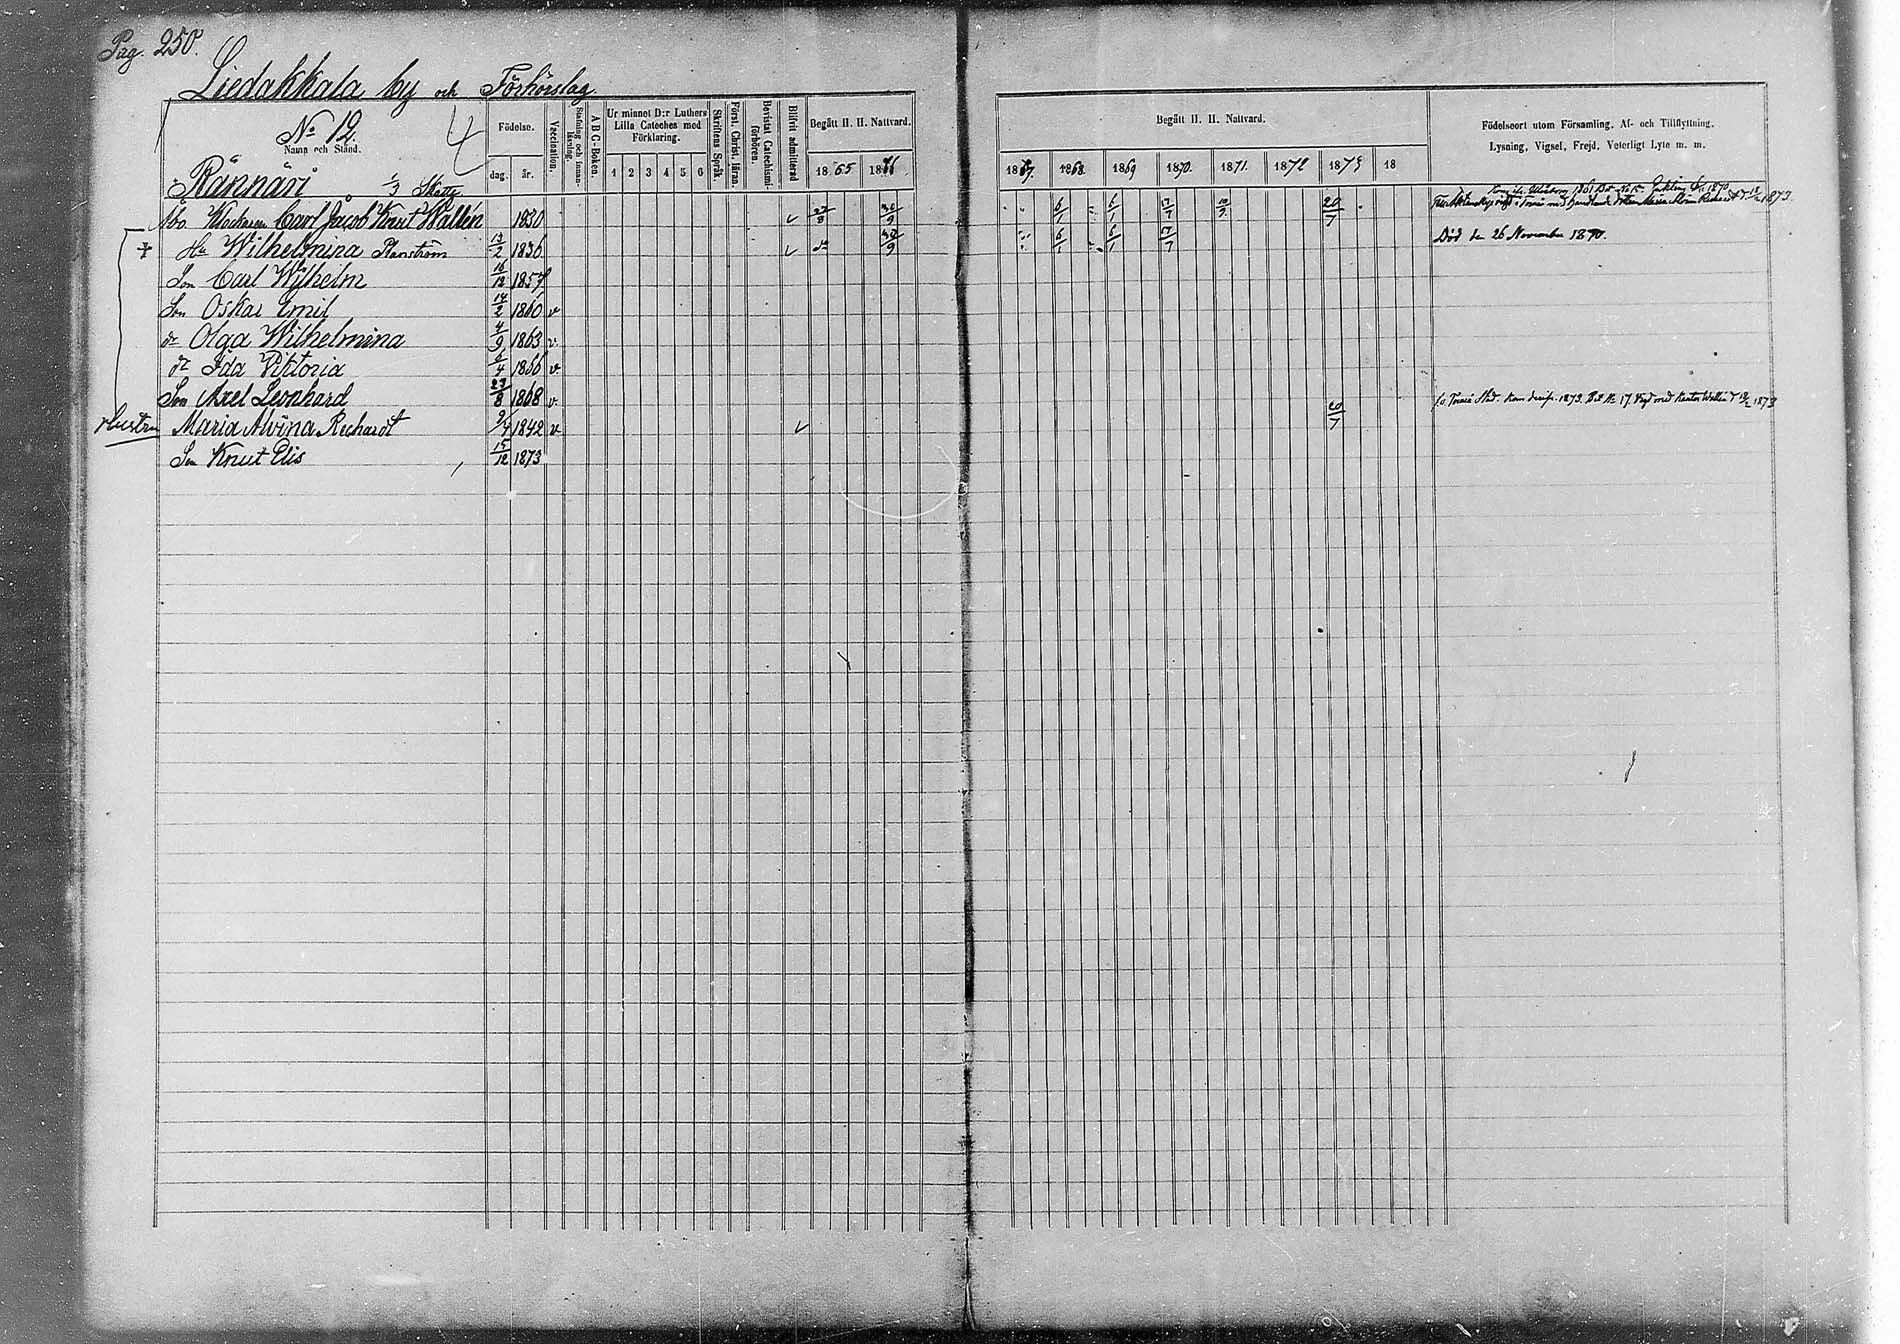 Pag. 250.
Liedakkala by och Förhörslag
No 12.
Namn och Stånd.
Födelse.
dag. år.
Vaccination.
Stafning och Innan-läsning.
A B C-Boken.
Ur minnet D:r Luthers Lilla Cateches med Förklaring.
1 2 3 4 5 6
Skriftens Språk.
Först. Christ. läran.
Bevistat Catechismi-förhören.
Blifvit admitterad
Begått H. H. Nattvard.
1865 1866
Begått H. H. Nattvard.
1867. 1868 1869 1870. 1871. 1872 1873 18
Födelseort utom Församling, Af- och Tillflyttning,
Lysning, Vigsel, Frejd, Veterligt Lyte m. m.
Rännäri 1/3 Skatte
Åbo. Klockaren Carl Jacob Knut Wallén 1830 27/8 30/9 6/1 6/1 17/7 20/7 1873
Hu Wilhelmina 13/2 1836 do 30/9 6/1 6/1 17/7 Död den 26 November 1870.
Son Carl Wilhelm 16/12 1857
Son Oskar Emil 14/2 1860 v
dr Olga Wilhelmina 4/9 1863 v.
dr Ida Viktoria 6/4 1866 v
Son Axel Leonhard 23/8 1868 v.
Hustru Maria Alvina Rechardt 9/4 1842 v 20/7 Torneå Stad. 1873. No 17. med Wallén 1873
Son Knut Elis 15/12 1873